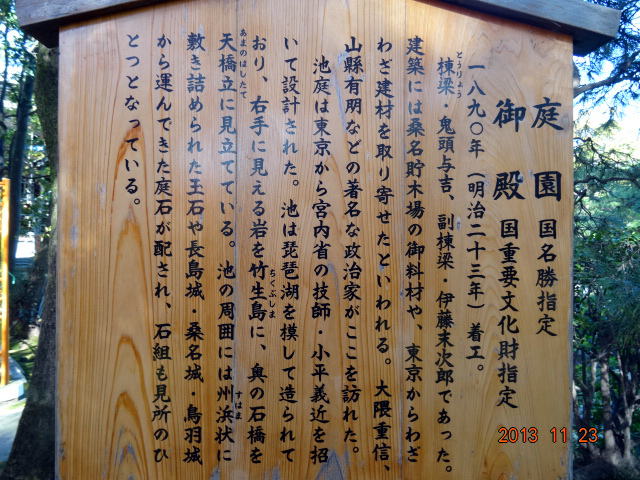 庭園 国名勝指定
御殿 国重要文化財指定
一八九〇年(明治二十三年)着工。
とうりょう
棟梁・鬼頭与吉、副棟梁・伊藤末次郎であった。
建築には桑名貯木場の御料材や、東京からわざ
わざ建材を取り寄せたといわれる。大隈重信、
山縣有朋などの著名な政治家がここを訪れた。
池庭は東京から宮内省の技師・小平義近を招
いて設計された。池は琵琶湖を模して造られて
ちくぶしま
おり、右手に見える岩を竹生島に、奥の石橋を
あまのはしたて
天橋立に見立てている。池の周囲には州浜状に
すはま
敷き詰められた玉石や長島城・桑名城・鳥羽城
から運んできた庭石が配され、石組も見所のひ
とつとなっている。
2013 11 23